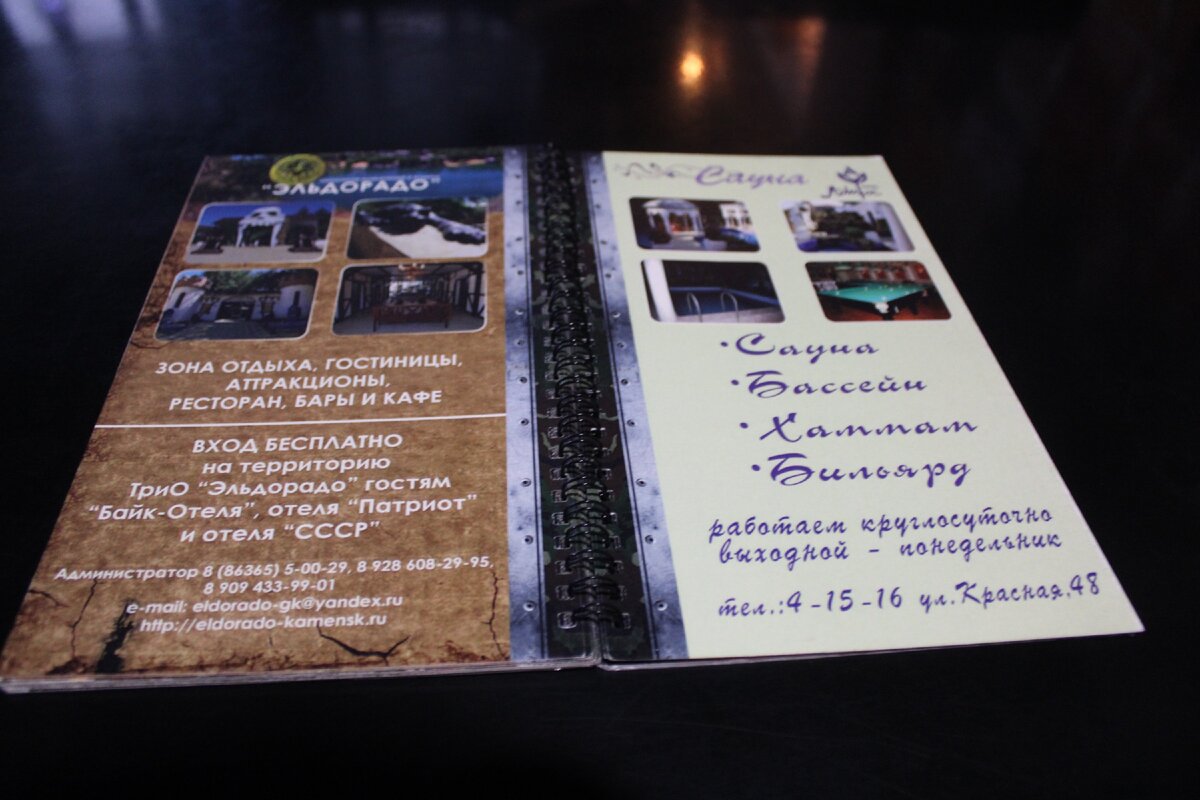 "ЭЛЬДОРАДО"
ЗОНА ОТДЫХА, ГОСТИНИЦЫ,
АТТРАКЦИОНЫ,
РЕСТОРАН, БАРЫ И КАФЕ
ВХОД БЕСПЛАТНО
на территорию
ТриО "Эльдорадо" гостям
"Байк-Отеля", отеля "Патриот"
и отеля "СССР"
Администратор 8 (86365) 5-00-29, 8 928 608-29-95,
8 909 433-99-01
e-mail: eldorado-gk@yandex.ru
http://eldorado-kamensk.ru
Сауна
• Сауна
• Бассейн
• Хаммам
• Бильярд
работаем круглосуточно
выходной - понедельник
тел.:4-15-16 ул.Красная,48